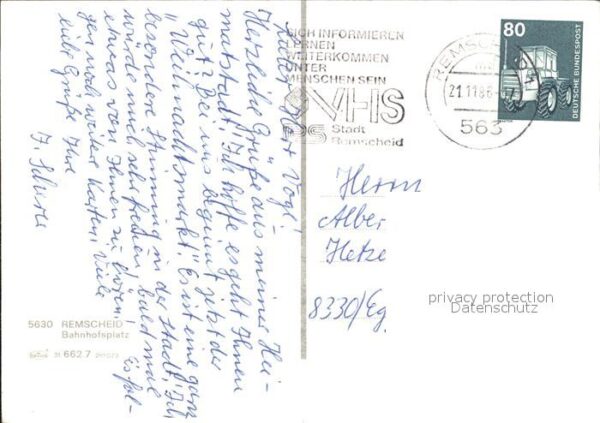 Lieber Herr Vogl!
Herzliche Grüße aus meiner Hei-
matstadt! Ich hoffe es geht Ihnen
gut? Bei uns beginnt jetzt der
"Weihnachtsmarkt". Es ist eine ganz
besondere Stimmung in der Stadt! Ich
würde mich sehr freuen bald mal
etwas von Ihnen zu hören! Es fol-
gen noch weitere Karten! Viele
liebe Grüße Ihre
5630 REMSCHEID
Bahnhofsplatz
31 662.7
SICH INFORMIEREN
LERNEN
WEITERKOMMEN
UNTER
MENSCHEN SEIN
VHS
Stadt
Remscheid
REMSCHEID
21.11.86
563
80
DEUTSCHE BUNDESPOST
Herrn
Alber
Hetze
8330/Eg
privacy protection
Datenschutz